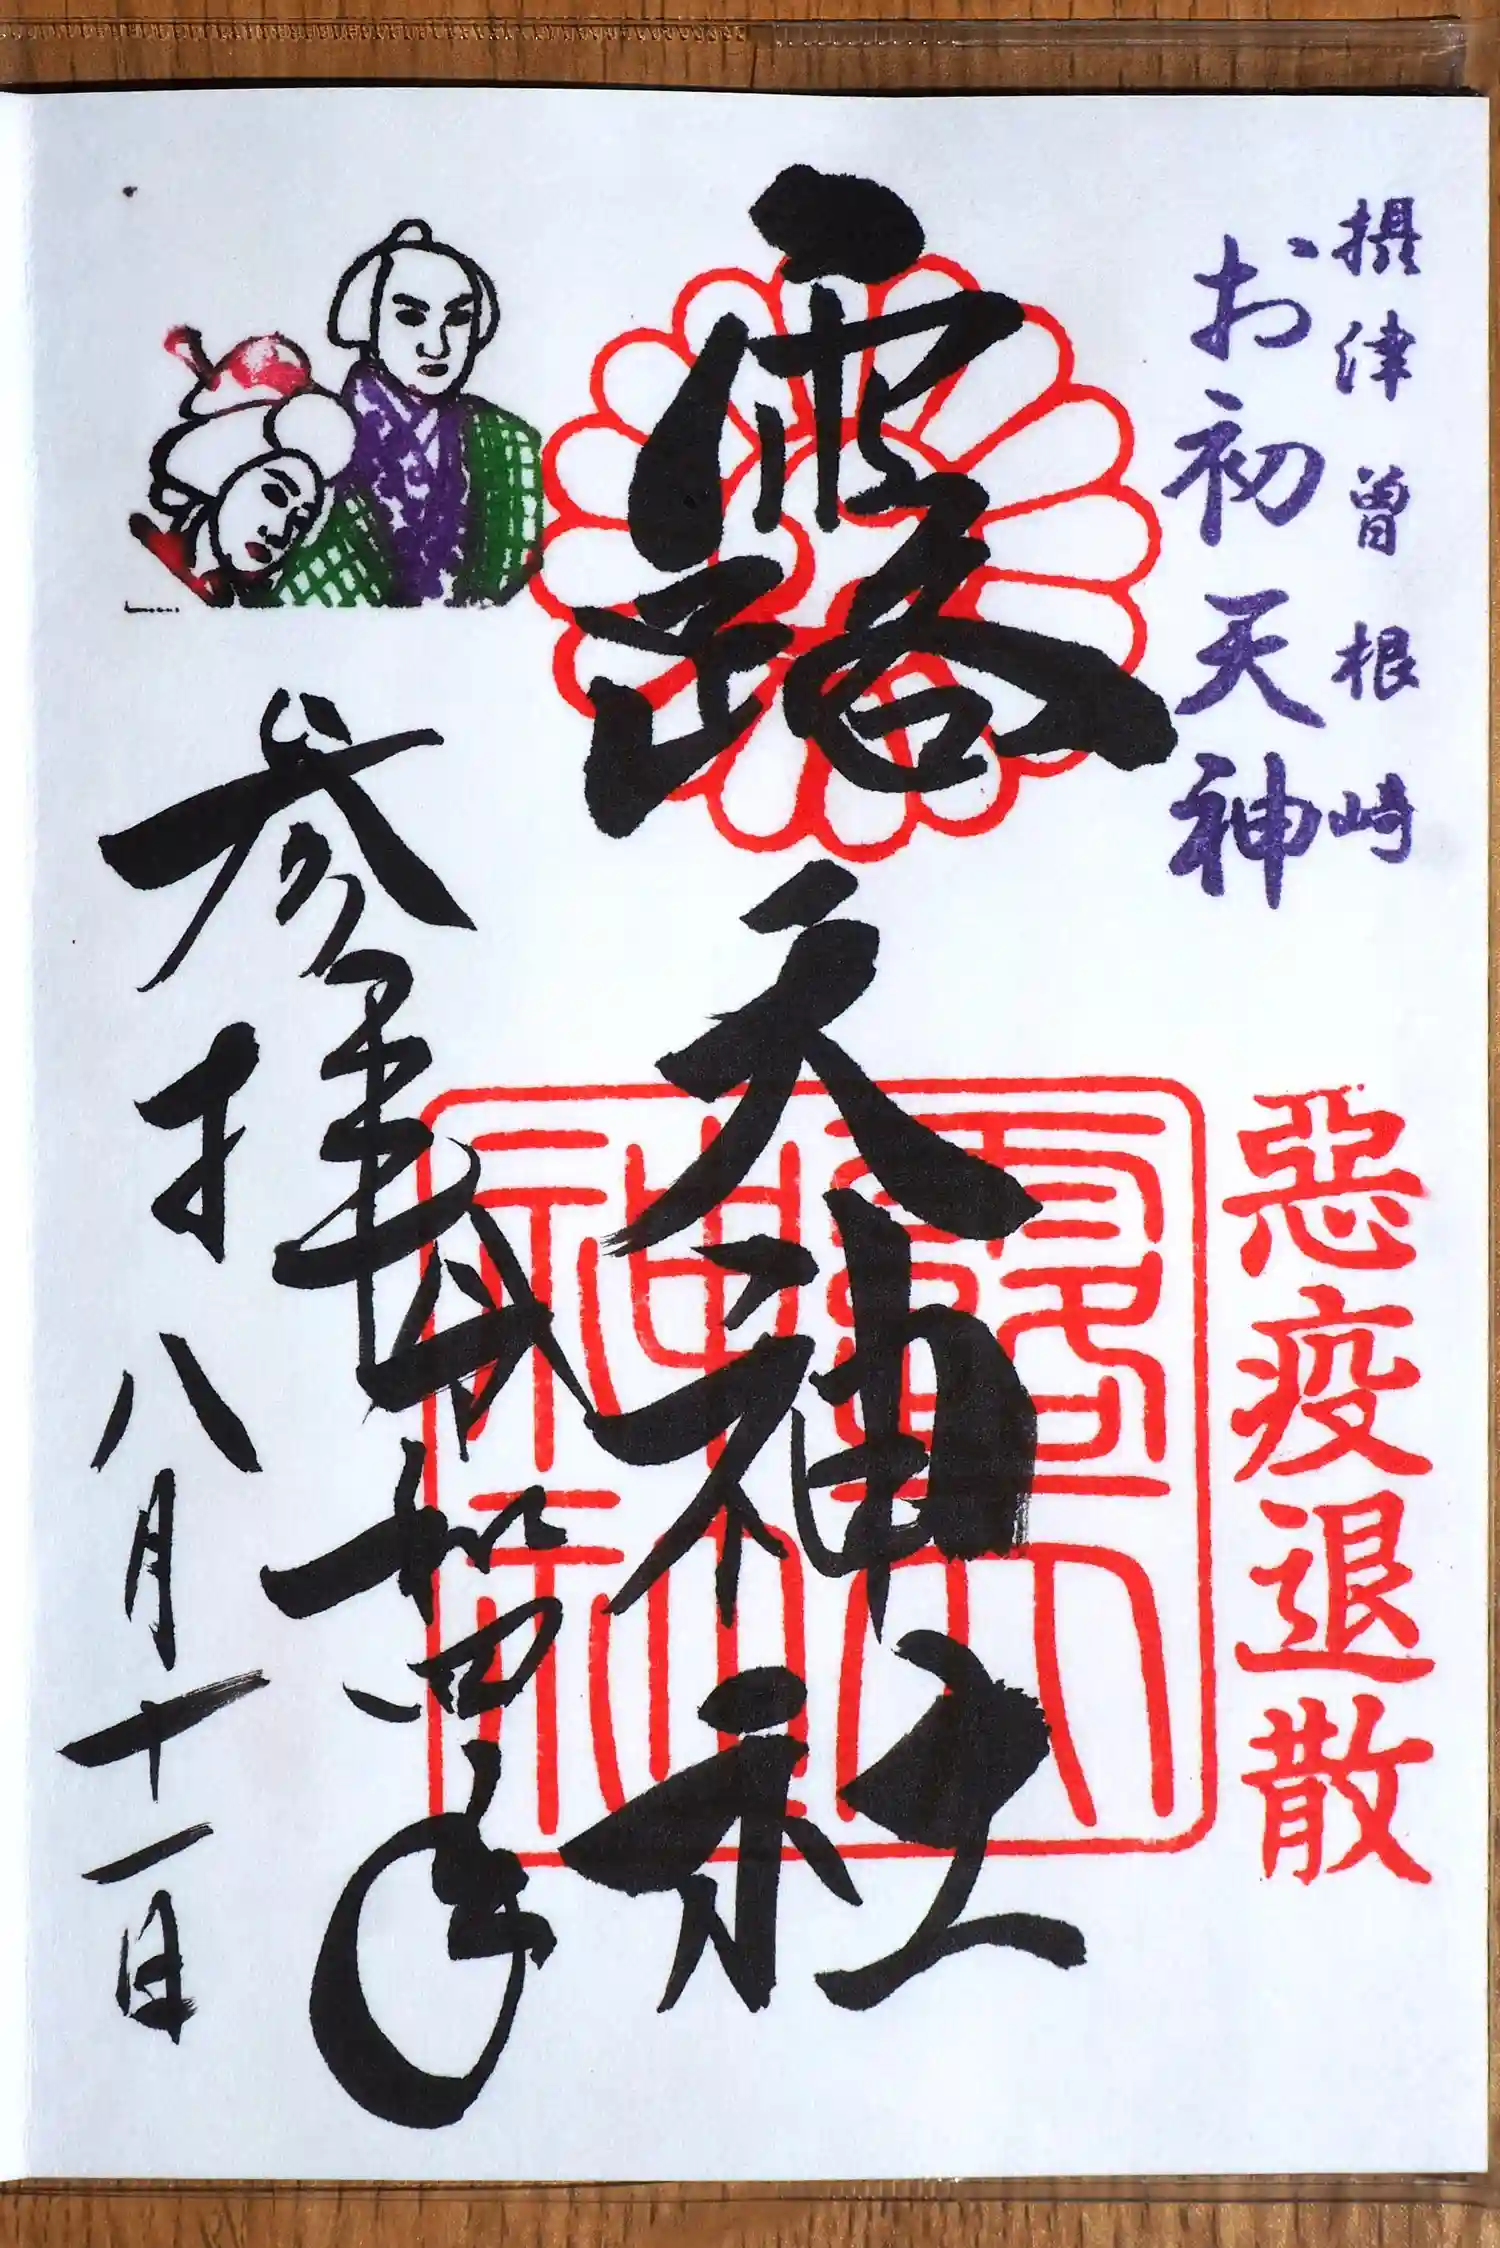 摂津曽根崎
お初天神
惡疫退散
露天神社
露天
神社
令和四年
八月十一日
参拝